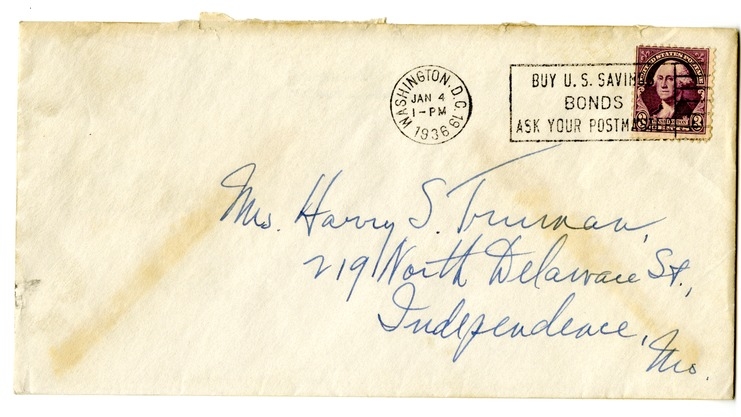 WASHINGTON, D.C. 19
JAN 4
1-PM
1936
BUY U.S. SAVINGS
BONDS
ASK YOUR POSTMA
3 3
Mrs. Harry S. Truman,
219 North Delaware St.,
Independence,
Mo.